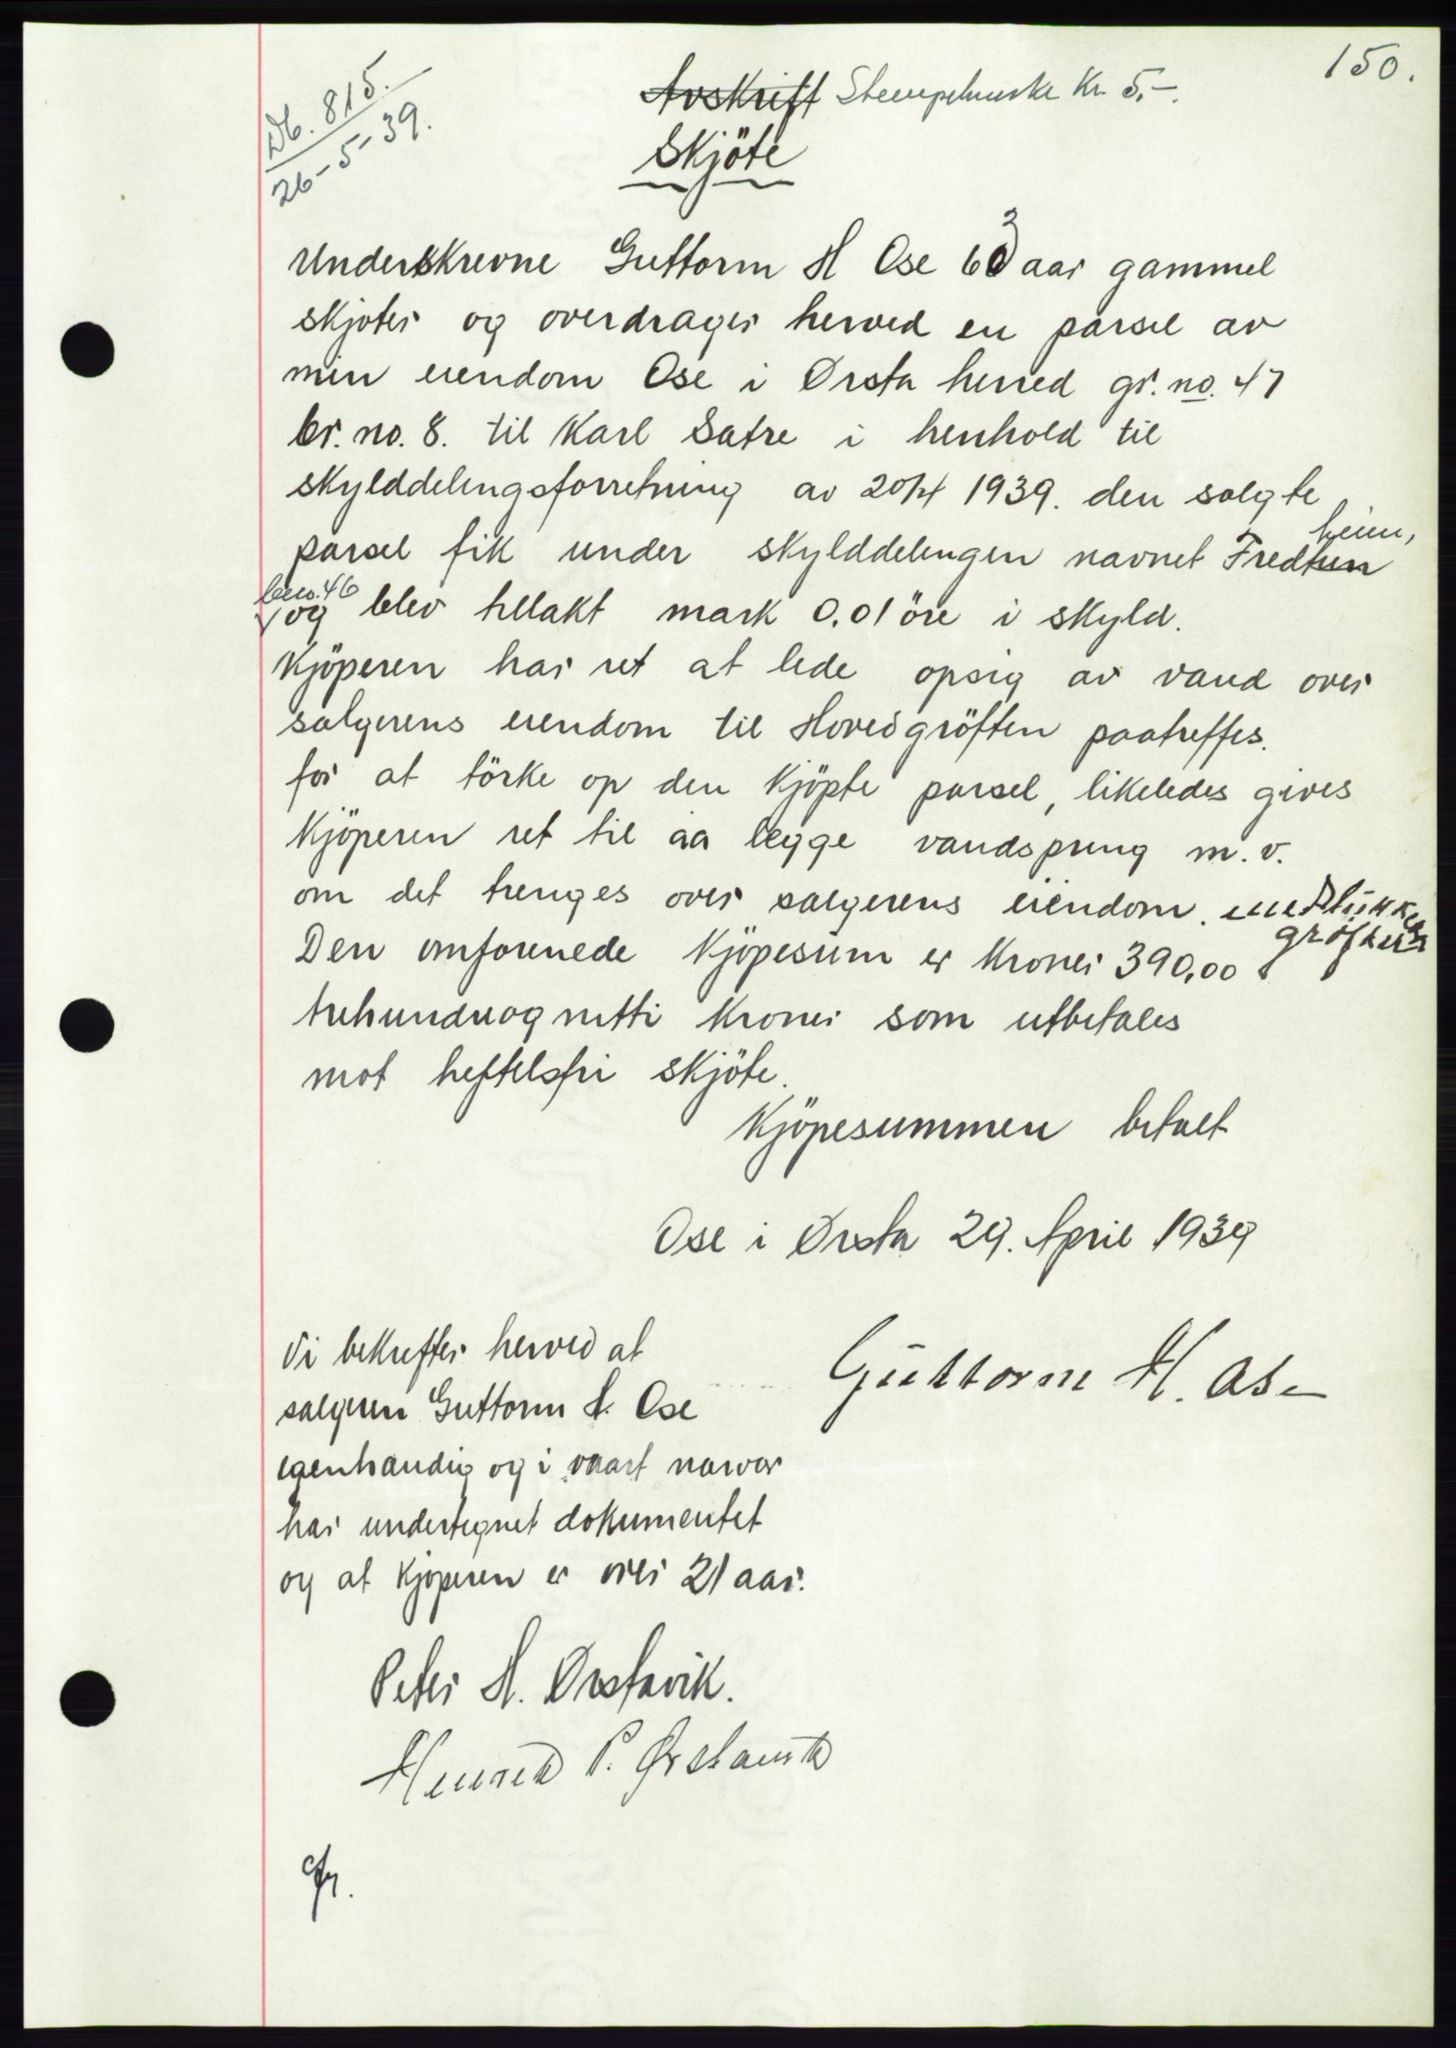 150.
Db. 815.
26-5-39.
Avskrift Stempelmerke Kr. 5.-.
Skjöte
Underskrevne Guttorm H Ose 63 aar gammel
skjøter og overdrager herved en parsel av
min eiendom Ose i Ørsta herred gr. no. 47
br. no. 8. til Karl Satre i henhold til
skylddelingsforretning av 20/4 1939. den solgte
heim,
parsel fik under skylddelingen navnet Fredtun
bno. 46
og blev tillakt mark 0.01 öre i skyld.
Kjöperen har ret at lede opsig av vand over
salgerens eiendom til Hovedgröften paatreffes.
for at törke op den kjöpte parsel, likeledes gives
Kjöperen ret til aa legge vandspring m. v.
om det trenges over salgerens eiendom. med lukkede
gröfter
Den omforenede Kjöpesum er Kroner 390,00
trehundreognitti Kroner som utbetales
mot heftelsfri skjöte.
Kjöpesummen betalt
Ose i Ørsta 29. April 1939
Guttorm H. Ose
Vi bekrefter herved at
salgeren Guttorm H. Ose
egenhandig og i vaart narvar
har undertegnet dokumentet
og at kjøperen er over 21 aar.
Peter H. Ørstavik.
Henrik P. Ørstavik